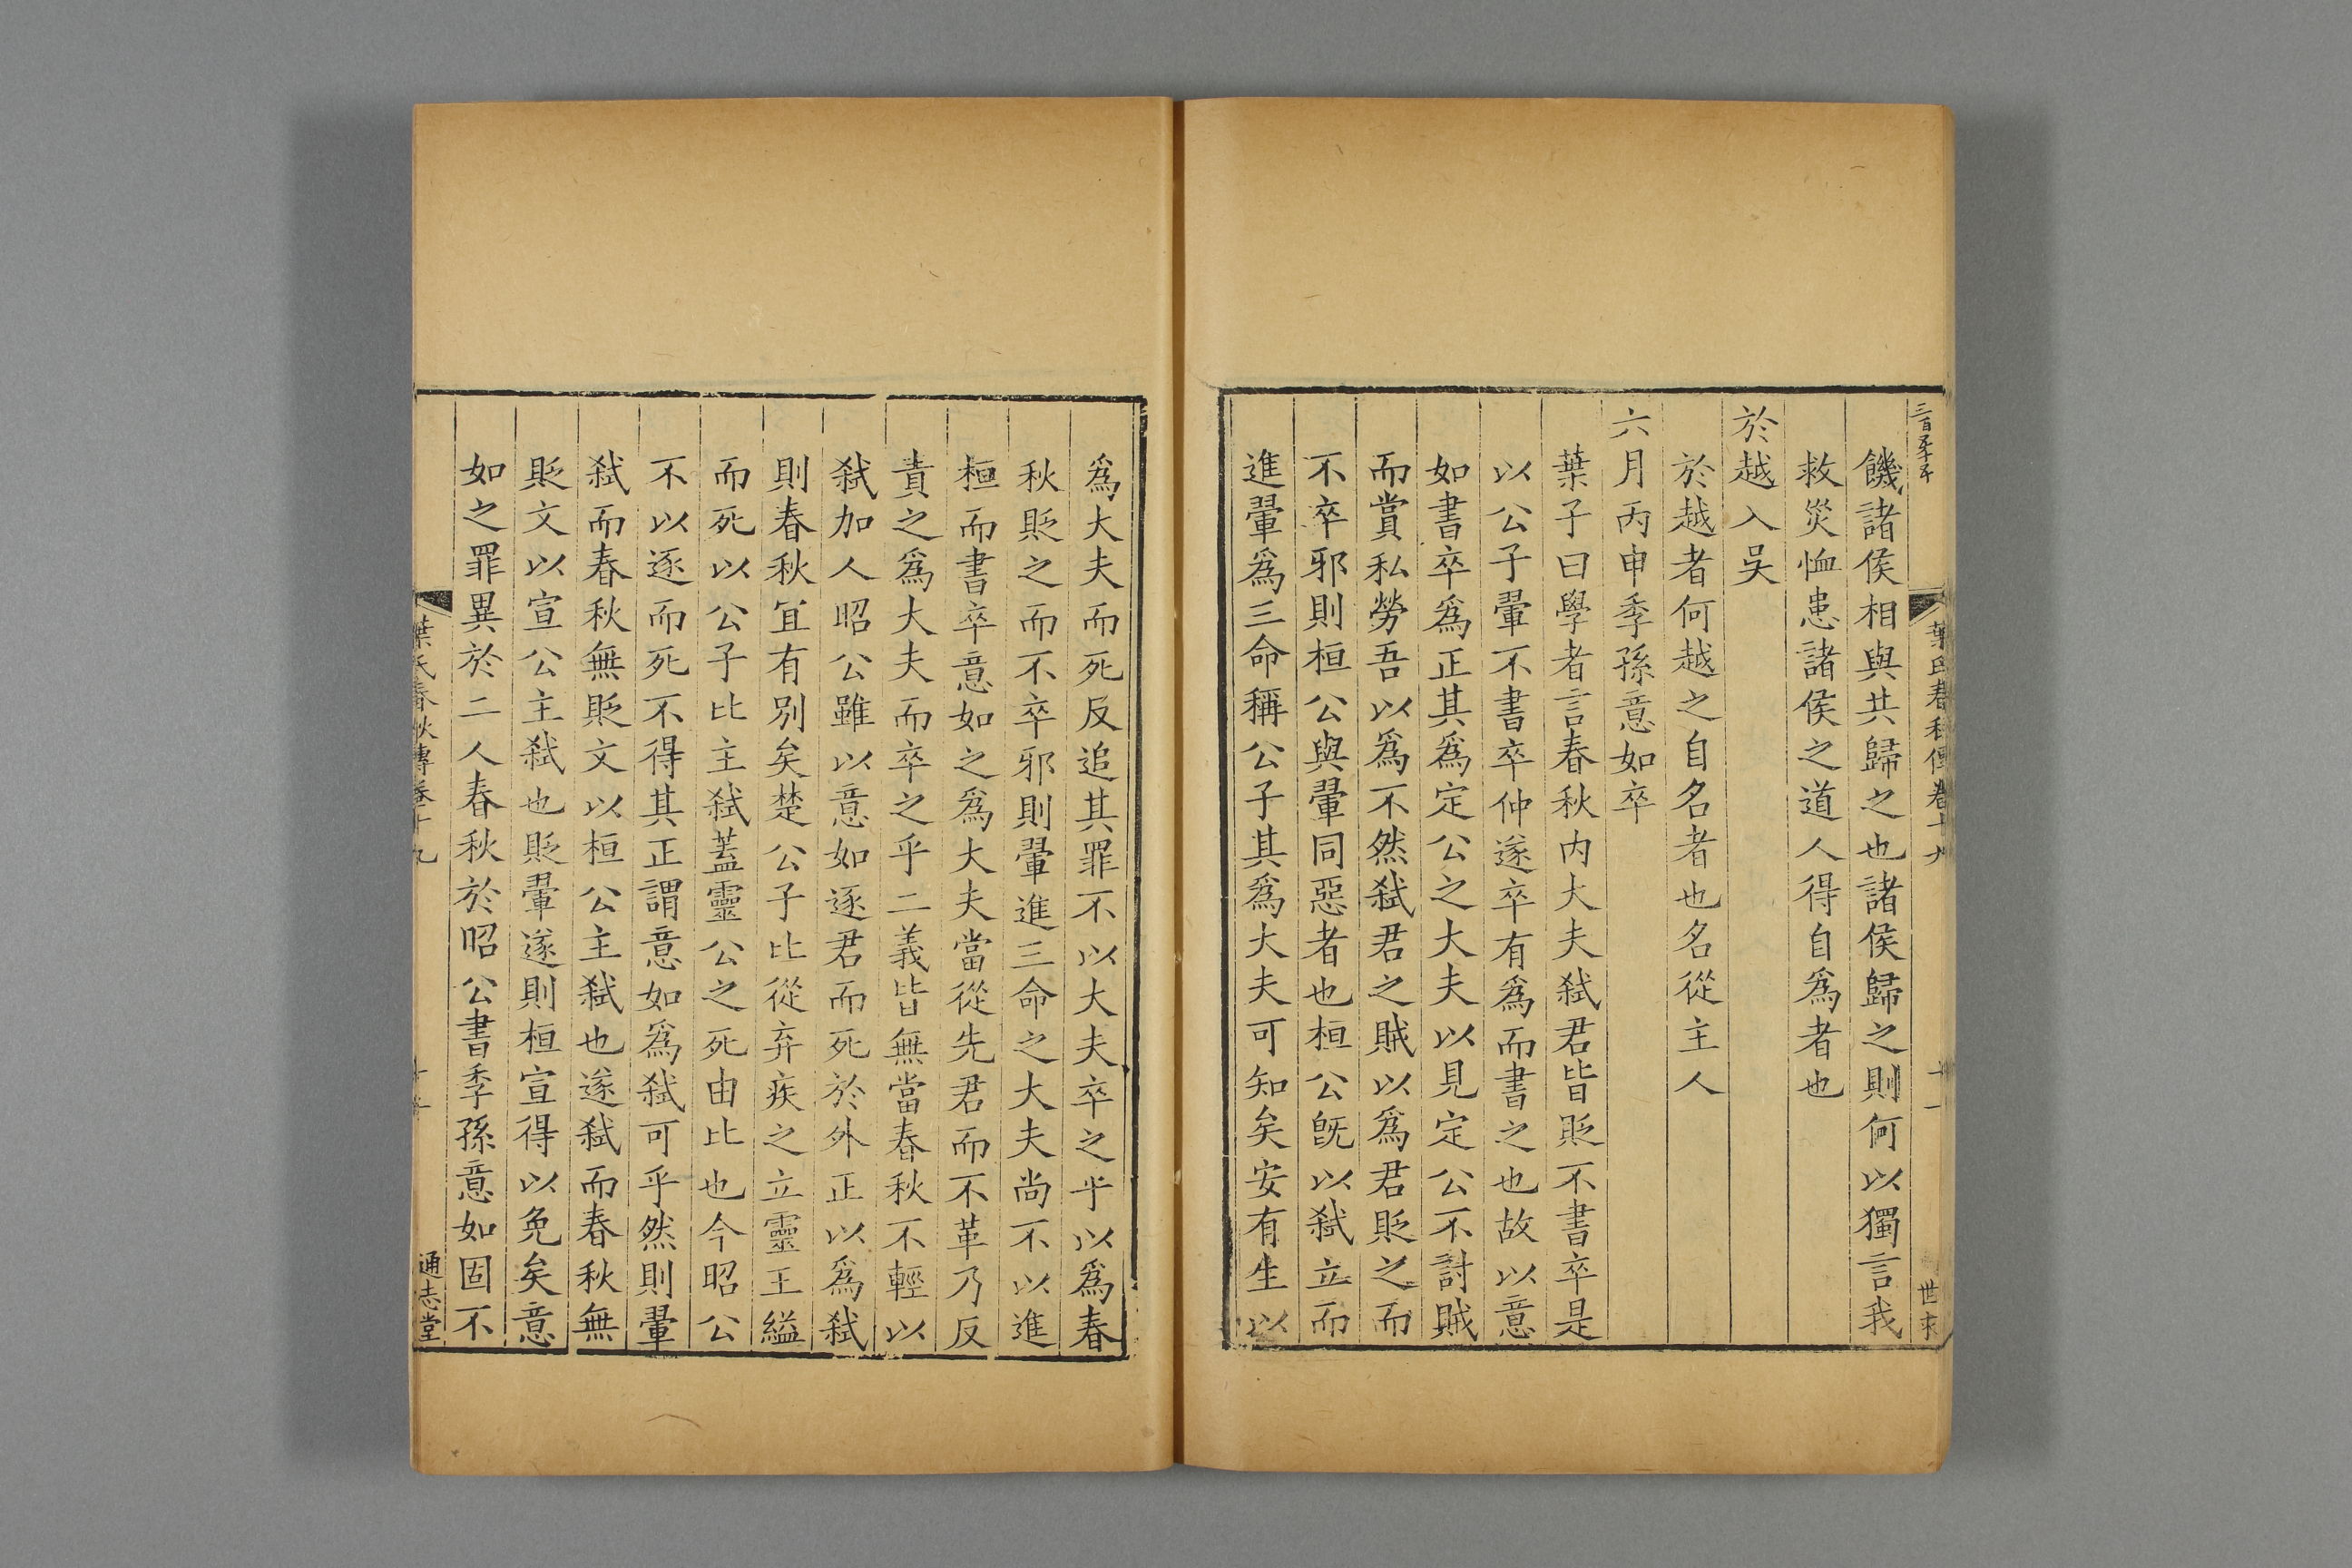 葉氏春秋傳卷十九
十一
饑諸侯相與共歸之也諸侯歸之則何以獨言我
救災恤患諸侯之道人得自爲者也
於越入吳
於越者何越之自名者也名從主人
六月丙申季孫意如卒
葉子曰學者言春秋内大夫弑君皆貶不書卒是
以公子翬不書卒仲遂卒有爲而書之也故以意
如書卒爲正其爲定公之大夫以見定公不討賊
而賞私勞吾以爲不然弑君之賊以爲君貶之而
不卒邪則桓公與翬同惡者也桓公既以弑立而
進翬爲三命稱公子其爲大夫可知矣安有生以
爲大夫而死反追其罪不以大夫卒之乎以爲春
秋貶之而不卒邪則翬進三命之大夫尚不以進
桓而書卒意如之爲大夫當從先君而不革乃反
責之爲大夫而卒之乎二義皆無當春秋不輕以
弑加人昭公雖以意如逐君而死於外正以爲弑
則春秋冝有別矣楚公子比從弃疾之立靈王縊
而死以公子比主弑蓋靈公之死由比也今昭公
不以逐而死不得其正謂意如爲弑可乎然則翬
弑而春秋無貶文以桓公主弑也遂弑而春秋無
貶文以宣公主弑也貶翬遂則桓宣得以免矣意
如之罪異於二人春秋於昭公書季孫意如固不
葉氏春秋傳卷十九
通志堂